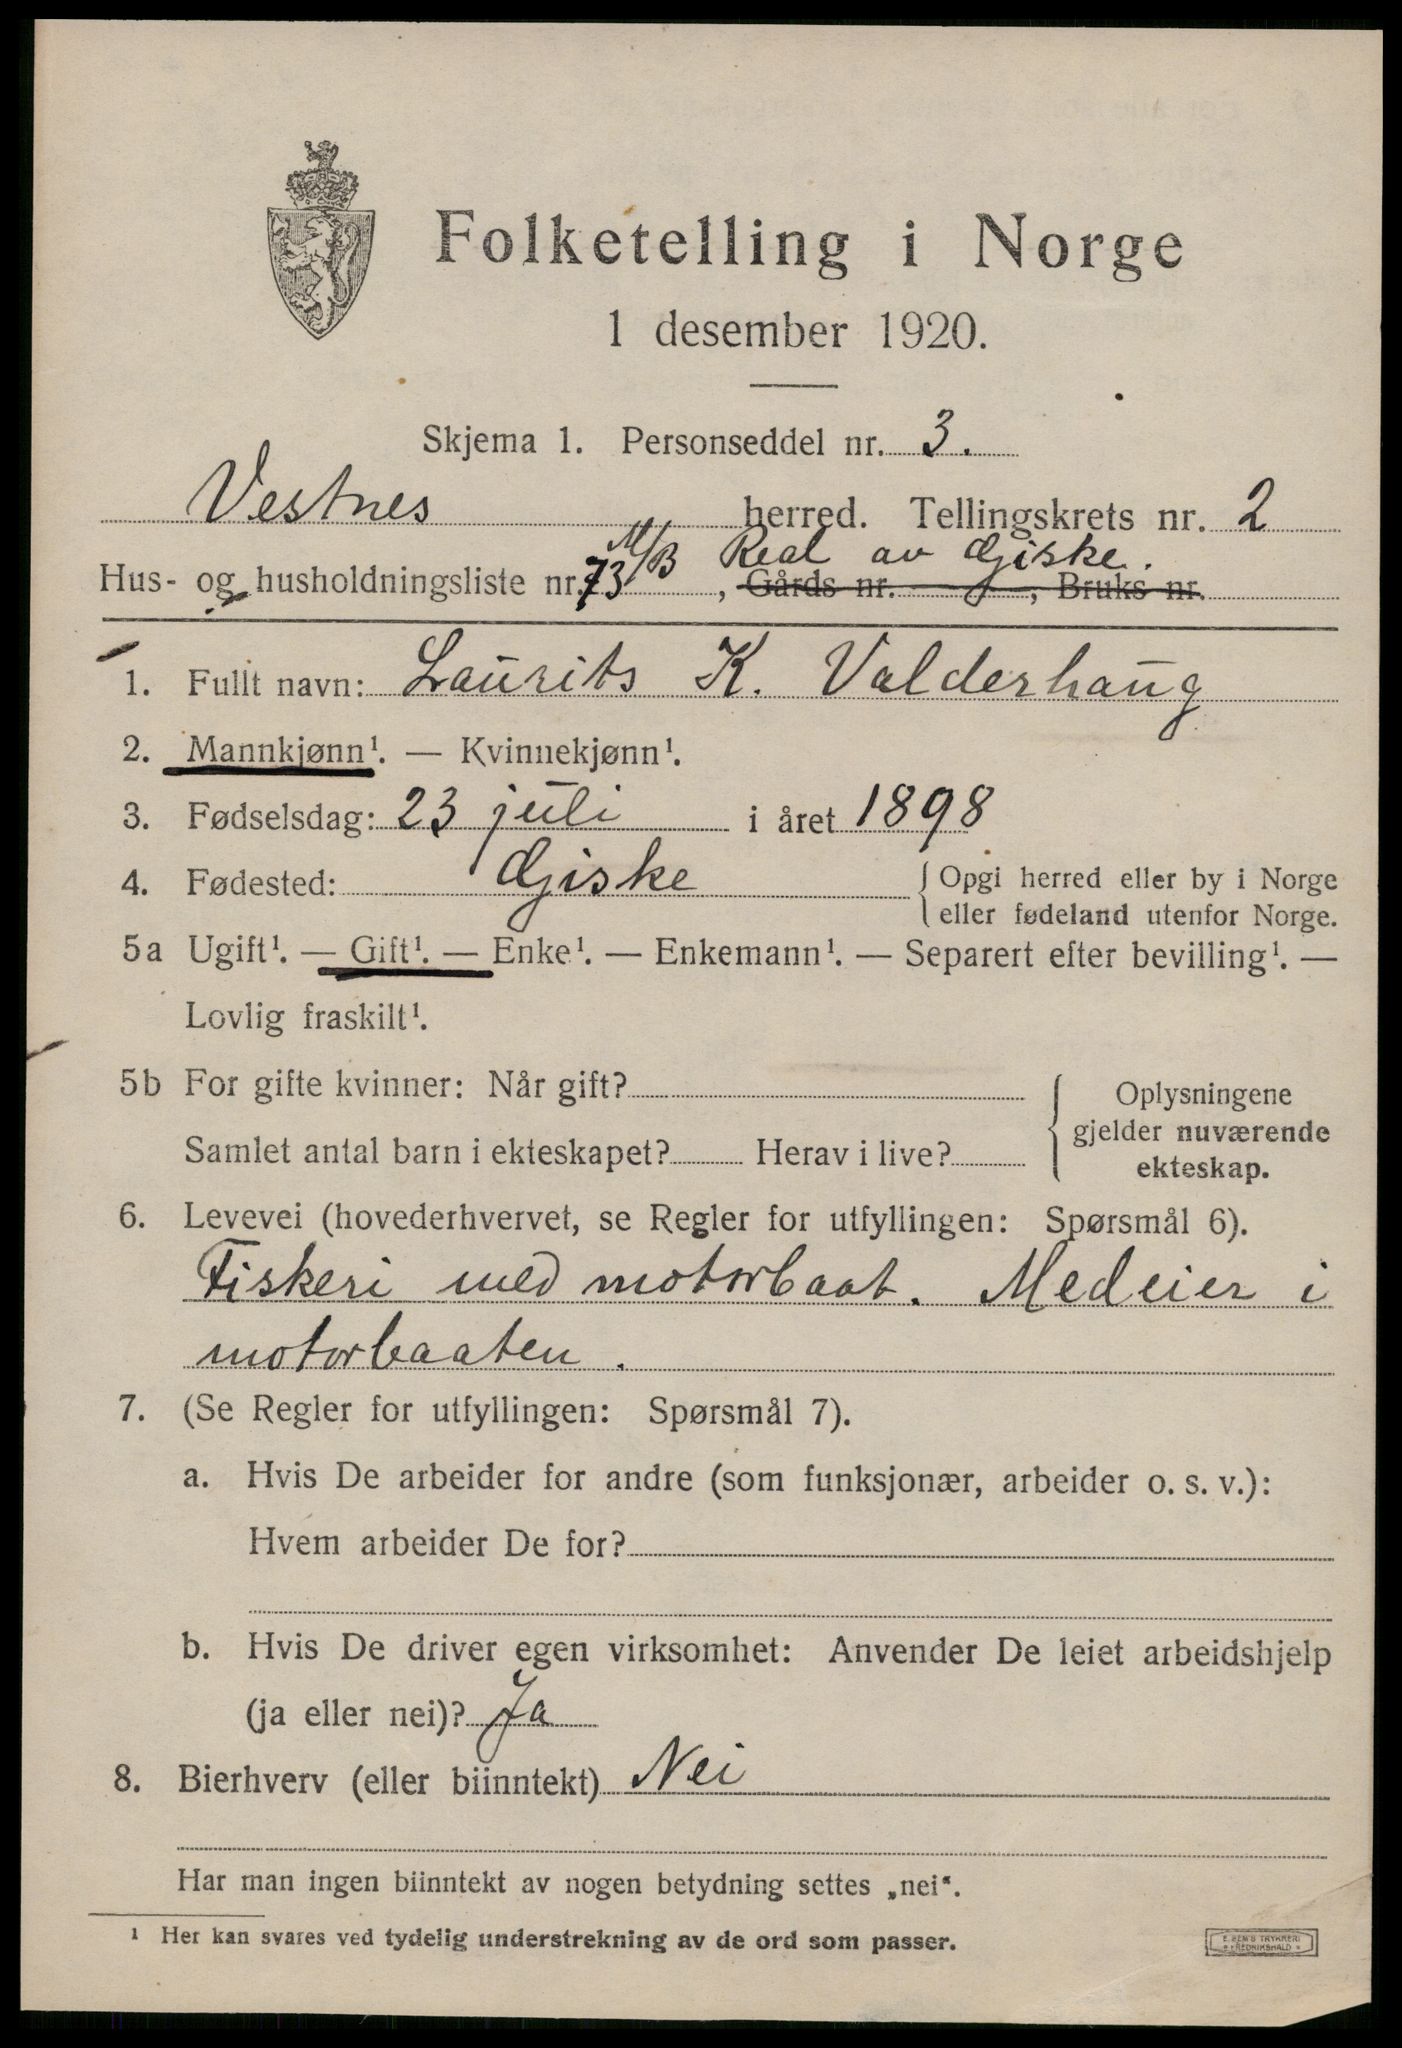 Folketelling i Norge
1 desember 1920.
Skjema 1. Personseddel nr. 3.
Vestnes herred. Tellingskrets nr. 2
M/B Real av Giske.
Hus- og husholdningsliste nr. 73, Gårds nr. , Bruks nr.
1. Fullt navn: Laurits K. Valderhaug
2. Mannkjønn¹. — Kvinnekjønn¹.
3. Fødselsdag: 23 juli i året 1898
4. Fødested: Giske { Opgi herred eller by i Norge
eller fødeland utenfor Norge.
5a Ugift¹. — Gift¹. — Enke¹. — Enkemann¹. — Separert efter bevilling¹. —
Lovlig fraskilt¹.
5b For gifte kvinner: Når gift? { Oplysningene
gjelder nuværende
Samlet antal barn i ekteskapet? Herav i live?
ekteskap.
6. Levevei (hovederhvervet, se Regler for utfyllingen: Spørsmål 6).
Fiskeri med motorbaat. Medeier i
motorbaaten.
7. (Se Regler for utfyllingen: Spørsmål 7).
a. Hvis De arbeider for andre (som funksjonær, arbeider o. s. v.):
Hvem arbeider De for?
b. Hvis De driver egen virksomhet: Anvender De leiet arbeidshjelp
(ja eller nei)? Ja
8. Bierhverv (eller biinntekt) Nei
Har man ingen biinntekt av nogen betydning settes „nei“.
¹ Her kan svares ved tydelig understrekning av de ord som passer.
E. SEM'S TRYKKERI
FREDRIKSHALD